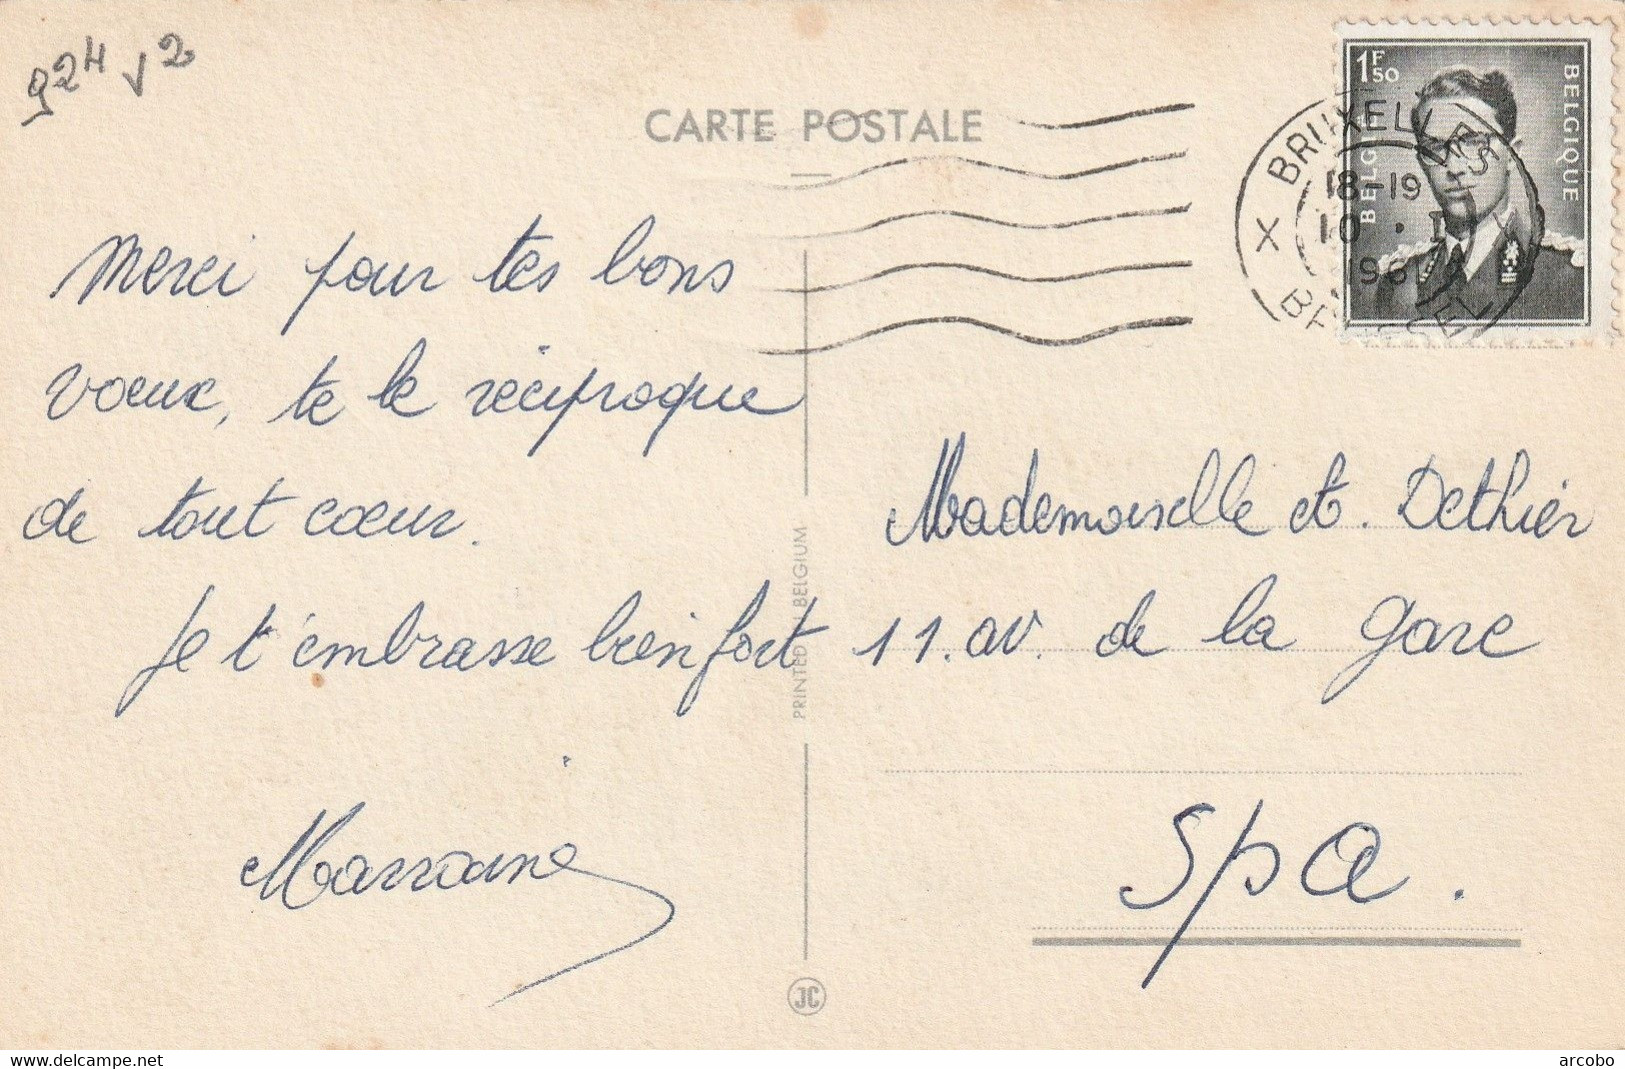 92H V2
CARTE POSTALE
1F50
BELGIE
BELGIQUE
BRUXELLES
18-19
10 . I
1961
BRUSSEL
Merci pour tes bons
voeux, te le réciproque
de tout coeur.
Je t'embrasse bien fort
Marraine
PRINTED IN BELGIUM
JC
Mademoiselle A. Dethier
11. av. de la gare
Spa.
www.delcampe.net
arcobo